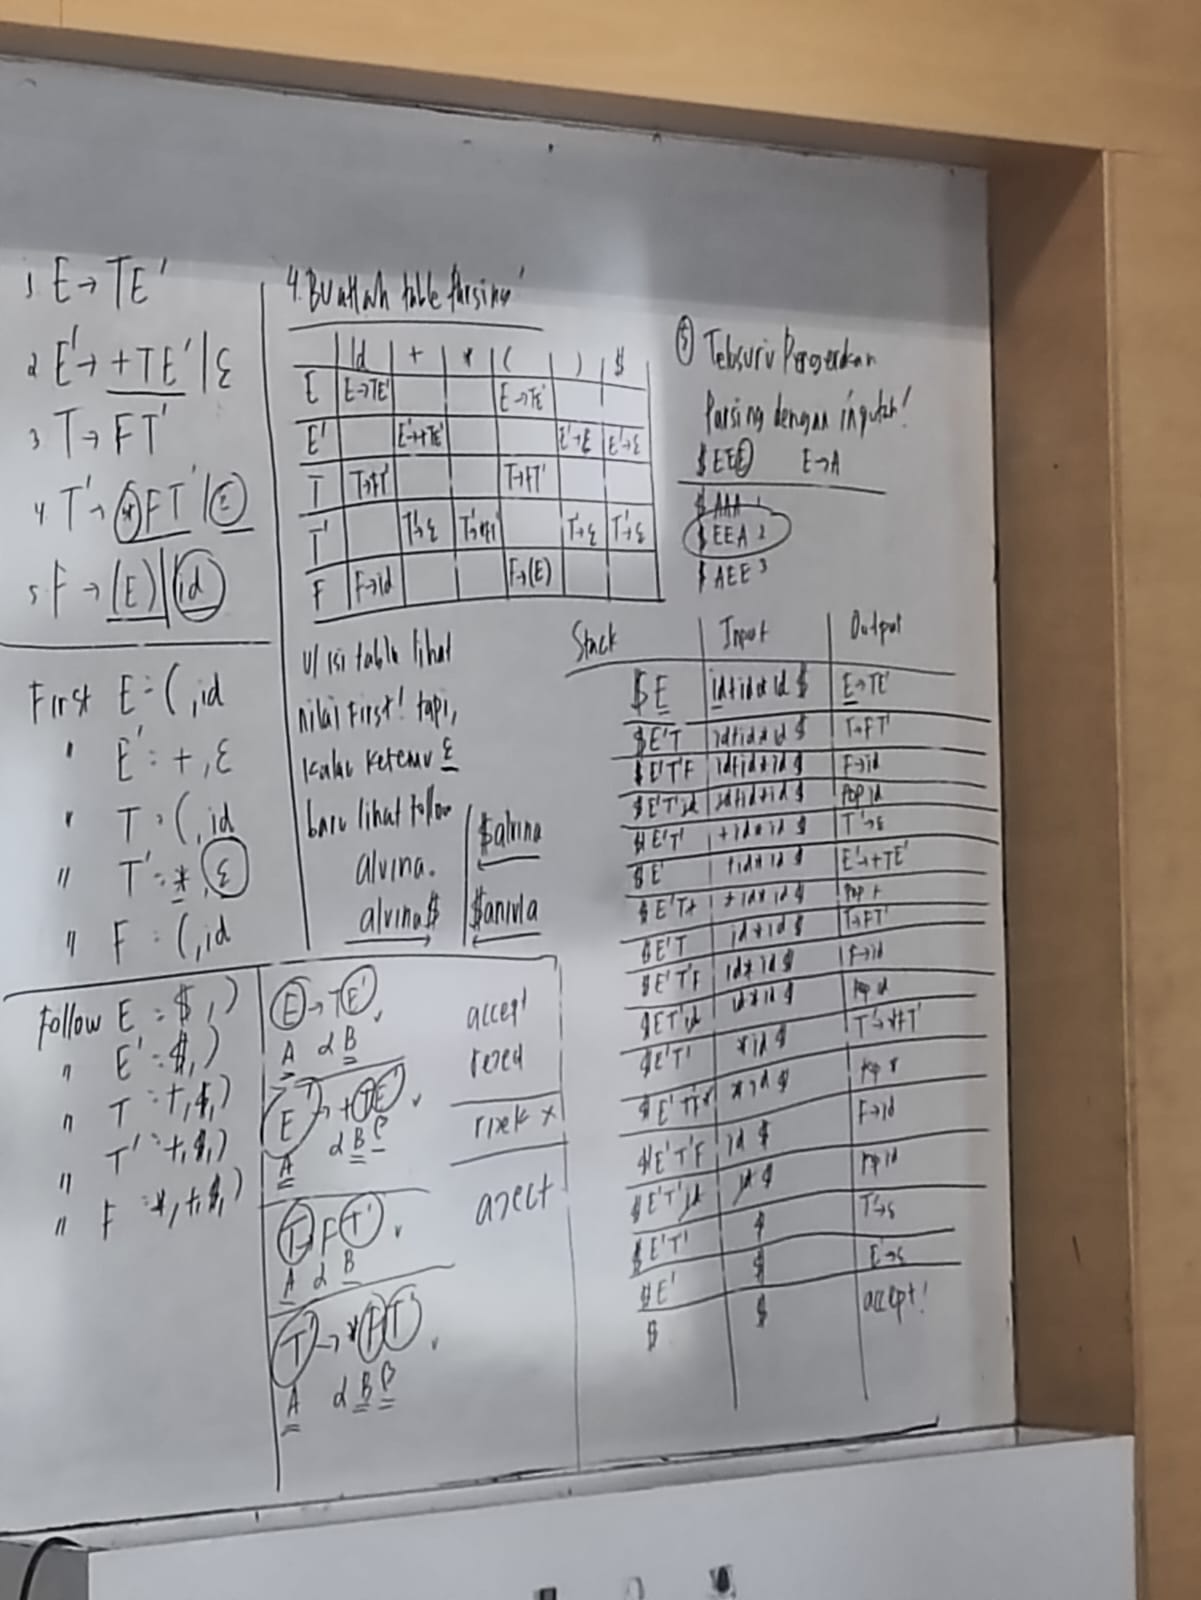 1. E → TE'
2. E' → +TE' | ε
3. T → FT'
4. T' → *FT' | ε
5. F → (E) | id
First E = (, id
" E' = +, ε
" T = (, id
" T' = *, ε
" F = (, id
Follow E = $, )
" E' = $, )
" T = +, $, )
" T' = +, $, )
" F = *, +, $, )
4. Buatlah table Parsing
Id + * ( ) $
E E→TE' E→TE'
E' E'→+TE' E'→ε E'→ε
T T→FT' T→FT'
T' T'→ε T'→*FT' T'→ε T'→ε
F F→id F→(E)
u/ isi table lihat
nilai First! tapi,
kalau ketemu ε
baru lihat follow
alvina.
alvina$
$alvina
$anivla
E → TE'
A α B
E' → +TE'
A α B β
T → FT'
A α B
T' → *FT'
A α B β
accept
x
5 Parsing dengan
$EEE E→A
$AAA 1
$EEA 2
$AEE 3
Stack Input Output
$E id+id*id$ E→TE'
$E'T id+id*id$ T→FT'
$E'T'F id+id*id$ F→id
$E'T'id id+id*id$ Pop id
$E'T' +id*id$ T'→ε
$E' +id*id$ E'→+TE'
$E'T+ +id*id$ Pop +
$E'T id*id$ T→FT'
$E'T'F id*id$ F→id
$E'T'id id*id$ Pop id
$E'T' *id$ T'→*FT'
$E'T'F* *id$ Pop *
$E'T'F id$ F→id
$E'T'id id$ Pop id
$E'T' $ T'→ε
$E' $ E'→ε
$ $ accept!